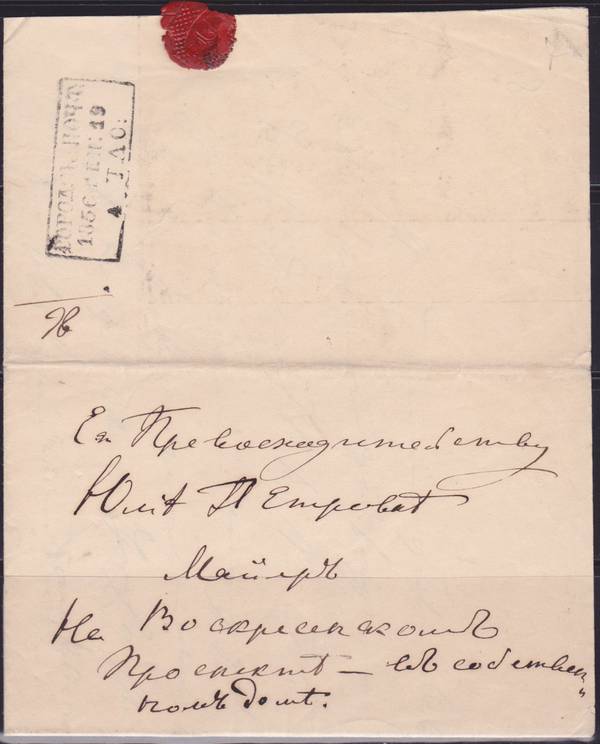 ГОРОДСК. ПОЧТА
1856 ГЕН: 19
4 ЧАС:
Ея Превосходительству
Юліѣ Петровнѣ
Майеръ
На Воскресенскомъ
Проспектѣ — въ собствен„
номъ домѣ.